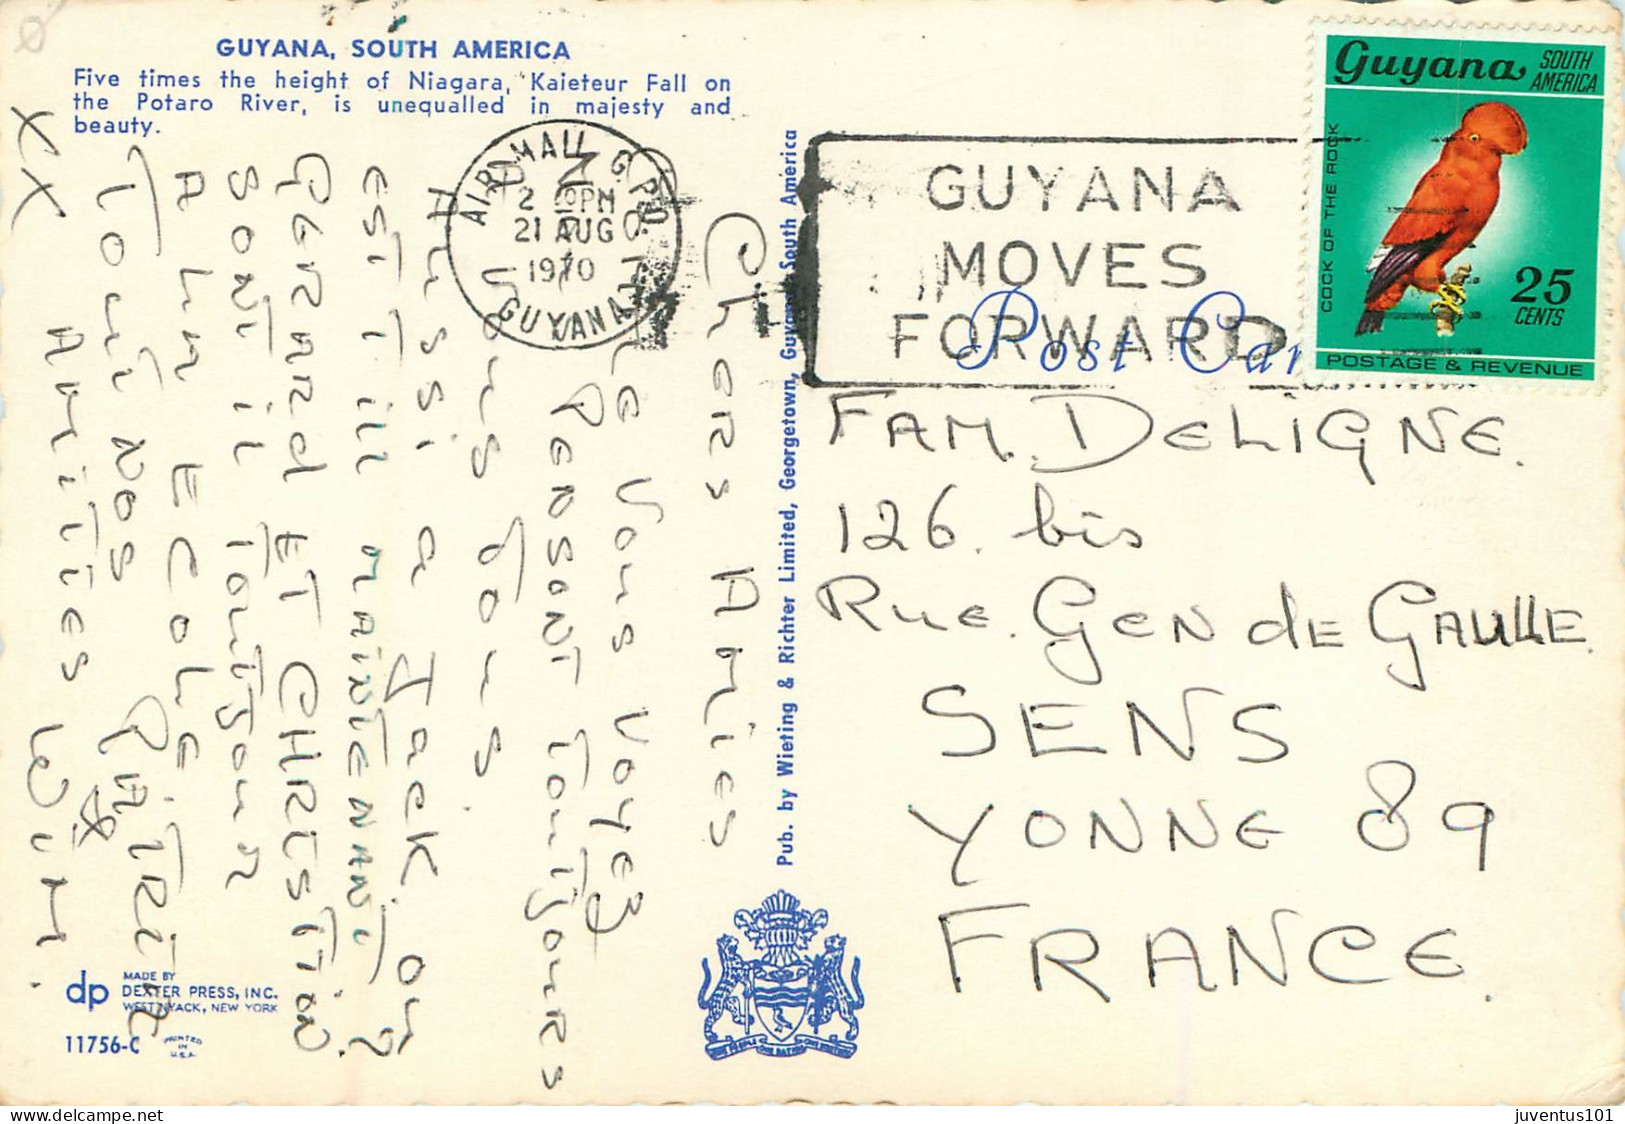 GUYANA, SOUTH AMERICA
Five times the height of Niagara, Kaieteur Fall on
the Potaro River, is unequalled in majesty and
beauty.
AIRMAIL G.P.O.
2 PM
21 AUG
1970
GUYANA
GUYANA
MOVES
FORWARD
Post Car
Guyana SOUTH
AMERICA
COCK OF THE ROCK
25
CENTS
POSTAGE & REVENUE
Chers Amies
Vous Voyez
Pensont Toujours
Vous Tous.
Aussi a Jack. ou
est T'ill maintenant?
Gerard ET CHRISTIAN
Sont il Toujour
A Lun Ecole.
Tout nos
Amities Wim.
XX
Pub. by Wieting & Richter Limited, Georgetown, Guyana, South America
FAM. DELIGNE.
126. bis
Rue. Gen de GAULLE.
SENS
YONNE 89
FRANCE.
dp MADE BY
DEXTER PRESS, INC.
WEST NYACK, NEW YORK
11756-C PRINTED
IN
U.S.A.
ONE PEOPLE ONE NATION ONE DESTINY
juventus101